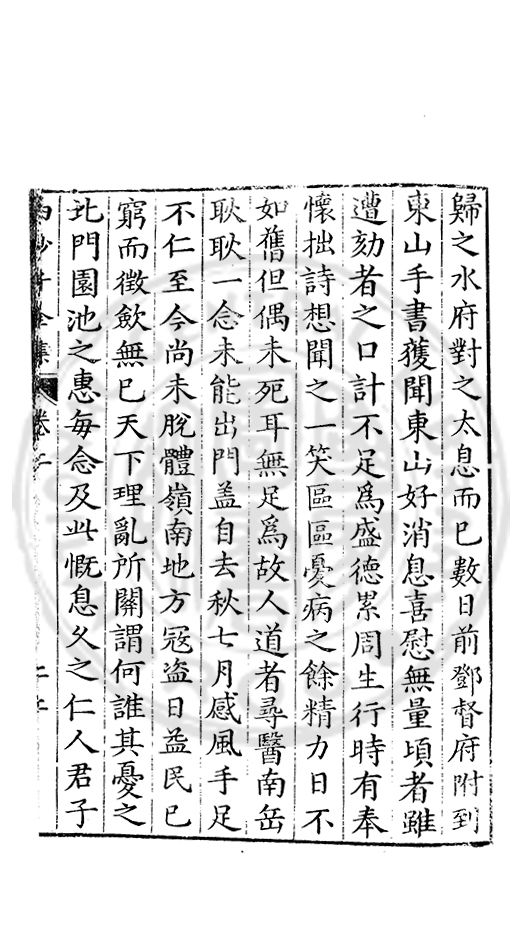 歸之水府對之太息而已數日前鄧督府附到
東山手書獲聞東山好消息喜慰無量項者雖
遭劾者之口計不足爲盛德累周生行時有奉
懷拙詩想聞之一笑區區憂病之餘精力日不
如舊但偶未死耳無足爲故人道者尋醫南岳
耿耿一念未能出門盖自去秋七月感風手足
不仁至今尚未脫體嶺南地方冦盗日益民已
窮而徵歛無已天下理亂所關謂何誰其憂之
北門園池之惠每念及此慨息久之仁人君子